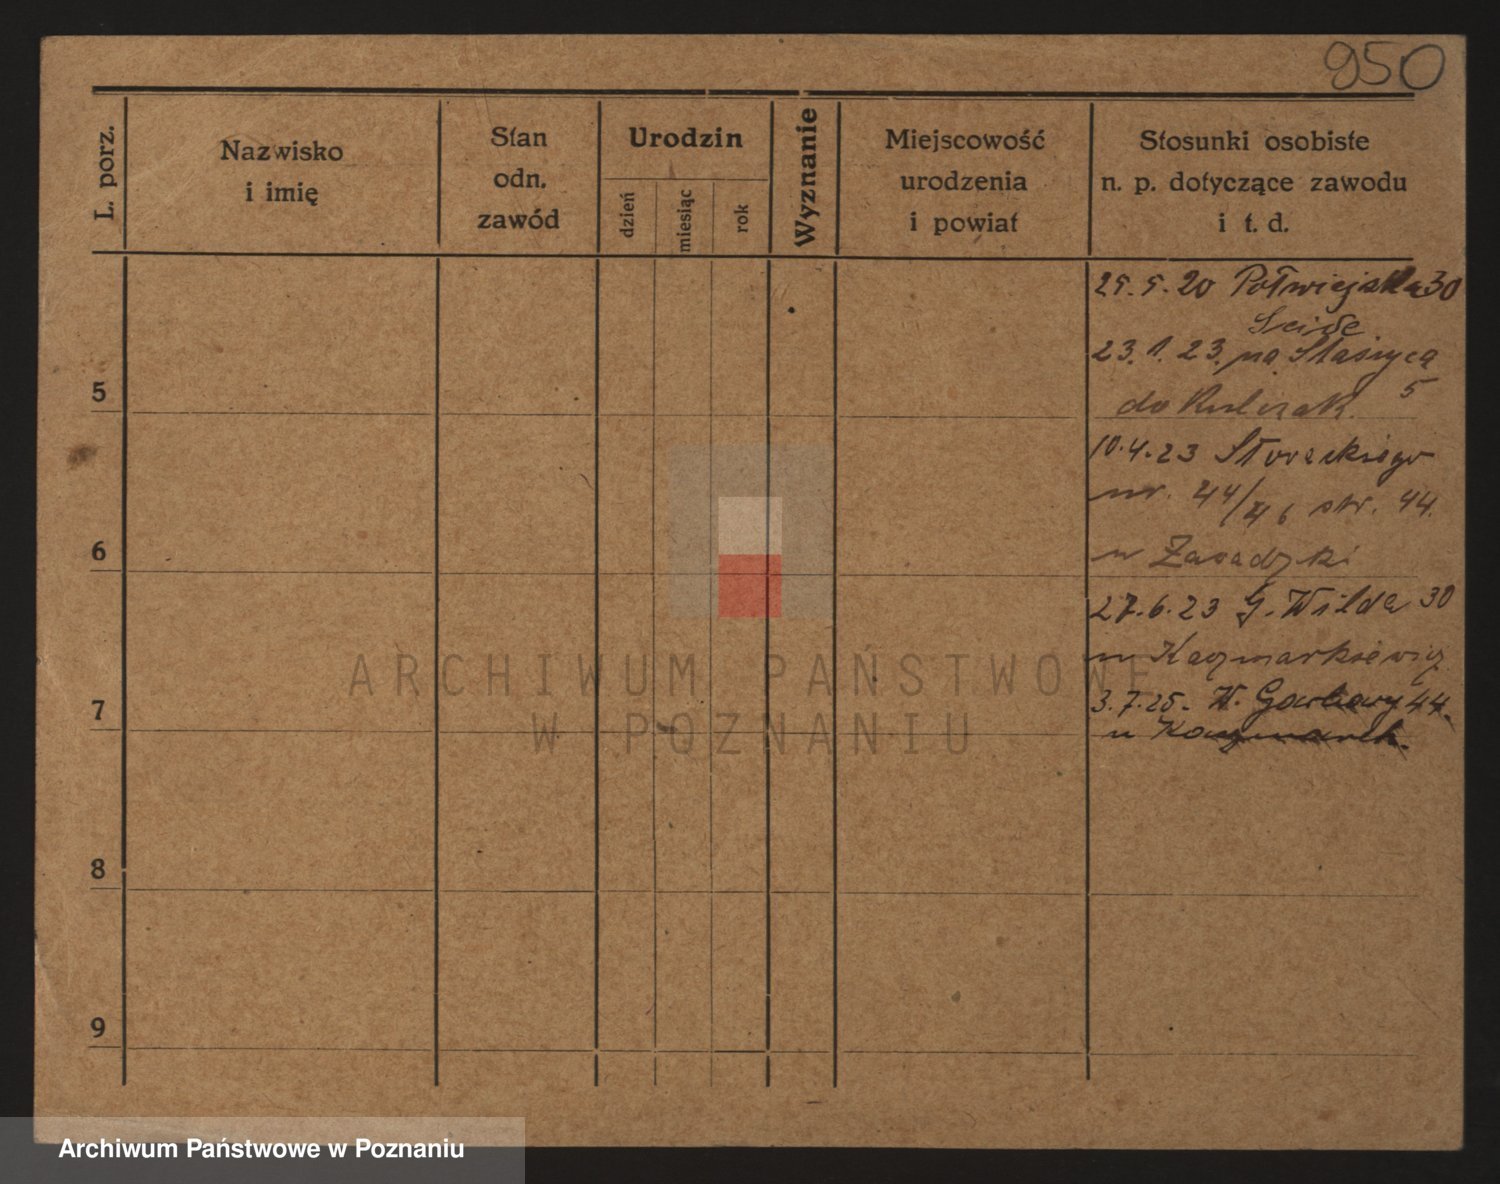 950
L. porz.
Nazwisko
i imię
Stan
odn.
zawód
Urodzin
dzień
miesiąc
rok
Wyznanie
Miejscowość
urodzenia
i powiat
Stosunki osobiste
n. p. dotyczące zawodu
i t. d.
25.5.20 Półwiejska 30
23.1.23. na Staszyca
5
do
10.4.23
nr. 44/46 str. 44.
u Zasadzki
27.6.23 G. Wilda 30
u Kaczmarkiewicz
3.7.25. W. Garbary 44.
u Kaczmarek.
5
6
7
8
9
ARCHIWUM PAŃSTWOWE
W POZNANIU
Archiwum Państwowe w Poznaniu